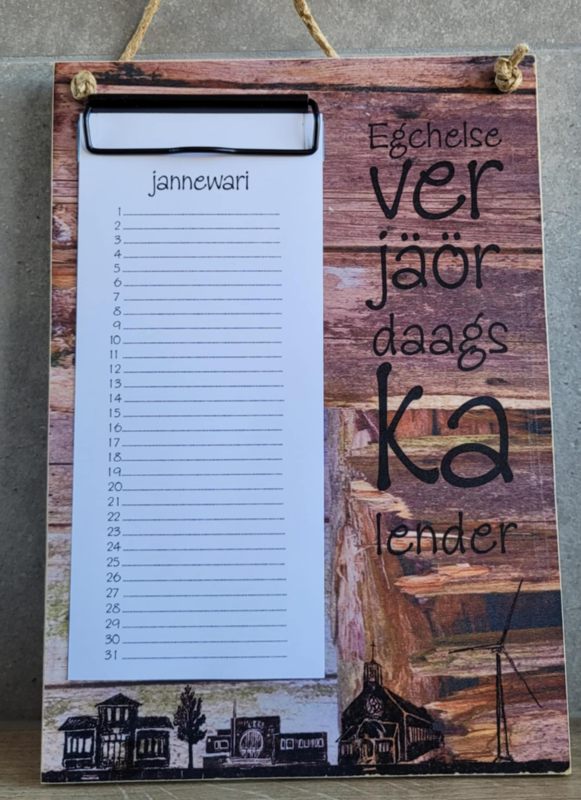 jannewari
1
2
3
4
5
6
7
8
9
10
11
12
13
14
15
16
17
18
19
20
21
22
23
24
25
26
27
28
29
30
31
Egchelse
ver
jäör
daags
ka
lender